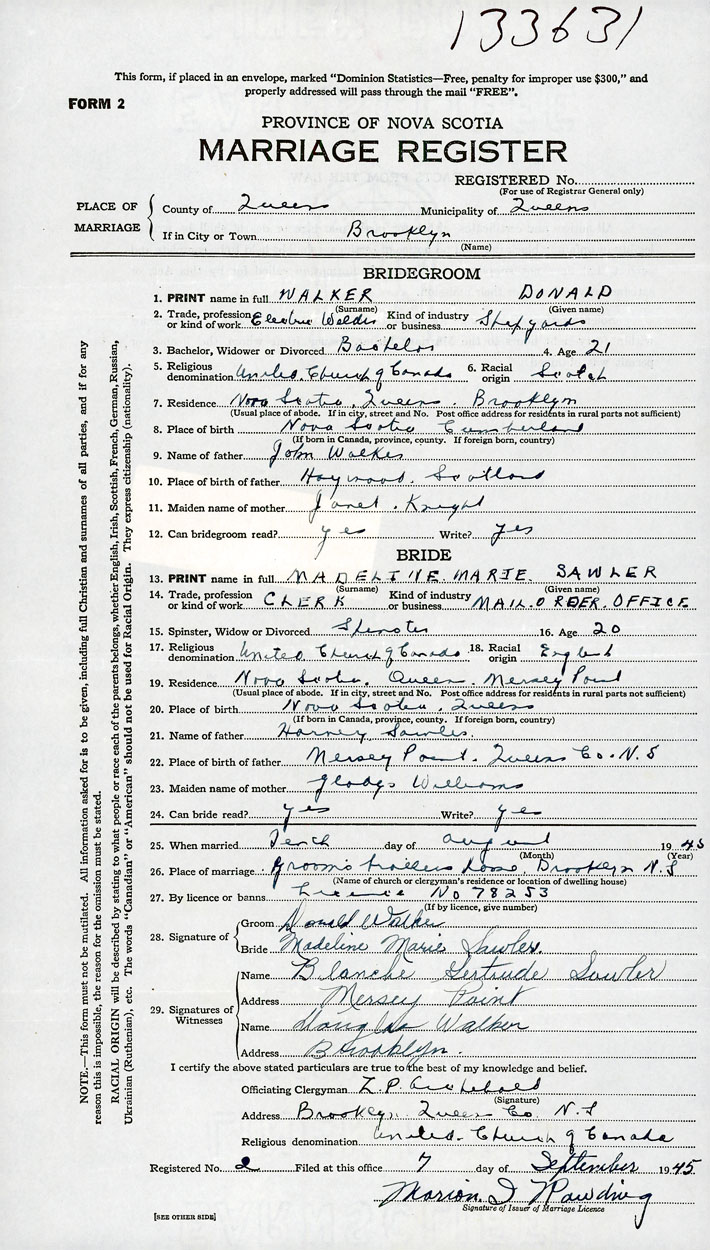 133631
This form, if placed in an envelope, marked "Dominion Statistics—Free, penalty for improper use $300," and
properly addressed will pass through the mail "FREE".
FORM 2
PROVINCE OF NOVA SCOTIA
MARRIAGE REGISTER
REGISTERED No.
(For use of Registrar General only)
PLACE OF MARRIAGE
County of Queens Municipality of Queens
If in City or Town Brooklyn
(Name)
BRIDEGROOM
1. PRINT name in full WALKER DONALD
(Surname) (Given name)
2. Trade, profession or kind of work Electric Welder Kind of industry or business Shipyards
3. Bachelor, Widower or Divorced Bachelor 4. Age 21
5. Religious denomination United Church of Canada 6. Racial origin Scotch
7. Residence Nova Scotia, Queens, Brooklyn
(Usual place of abode. If in city, street and No. Post office address for residents in rural parts not sufficient)
8. Place of birth Nova Scotia Cumberland
(If born in Canada, province, county. If foreign born, country)
9. Name of father John Walker
10. Place of birth of father Haywood, Scotland
11. Maiden name of mother Janet Knight
12. Can bridegroom read? yes Write? yes
BRIDE
13. PRINT name in full MADELINE MARIE SAWLER
(Surname) (Given name)
14. Trade, profession or kind of work CLERK Kind of industry or business MAIL ORDER OFFICE
15. Spinster, Widow or Divorced Spinster 16. Age 20
17. Religious denomination United Church of Canada 18. Racial origin English
19. Residence Nova Scotia, Queens, Mersey Point
(Usual place of abode. If in city, street and No. Post office address for residents in rural parts not sufficient)
20. Place of birth Nova Scotia, Queens
(If born in Canada, province, county. If foreign born, country)
21. Name of father Harvey Sawler
22. Place of birth of father Mersey Point, Queens Co. N.S
23. Maiden name of mother Gladys Williams
24. Can bride read? yes Write? yes
25. When married Tenth day of August 1945
(Month) (Year)
26. Place of marriage Groom's brothers home, Brooklyn N.S
(Name of church or clergyman's residence or location of dwelling house)
27. By licence or banns Licence No 78253
(If by licence, give number)
28. Signature of
Groom Donald Walker
Bride Madeline Marie Sawler
29. Signatures of Witnesses
Name Blanche Gertrude Sawler
Address Mersey Point
Name Douglas Walker
Address Brooklyn.
I certify the above stated particulars are true to the best of my knowledge and belief.
Officiating Clergyman Z. P. Archibald
(Signature)
Address Brooklyn Queens Co. N.S
Religious denomination United Church of Canada
Registered No. 2 Filed at this office 7 day of September 1945
Marion I Rawding
Signature of Issuer of Marriage Licence
[SEE OTHER SIDE]
NOTE.—This form must not be mutilated. All information asked for is to be given, including full Christian and surnames of all parties, and if for any
reason this is impossible, the reason for the omission must be stated.
RACIAL ORIGIN will be described by stating to what people or race each of the parents belongs, whether English, Irish, Scottish, French, German, Russian,
Ukrainian (Ruthenian), etc. The words "Canadian" or "American" should not be used for Racial Origin. They express citizenship (nationality).